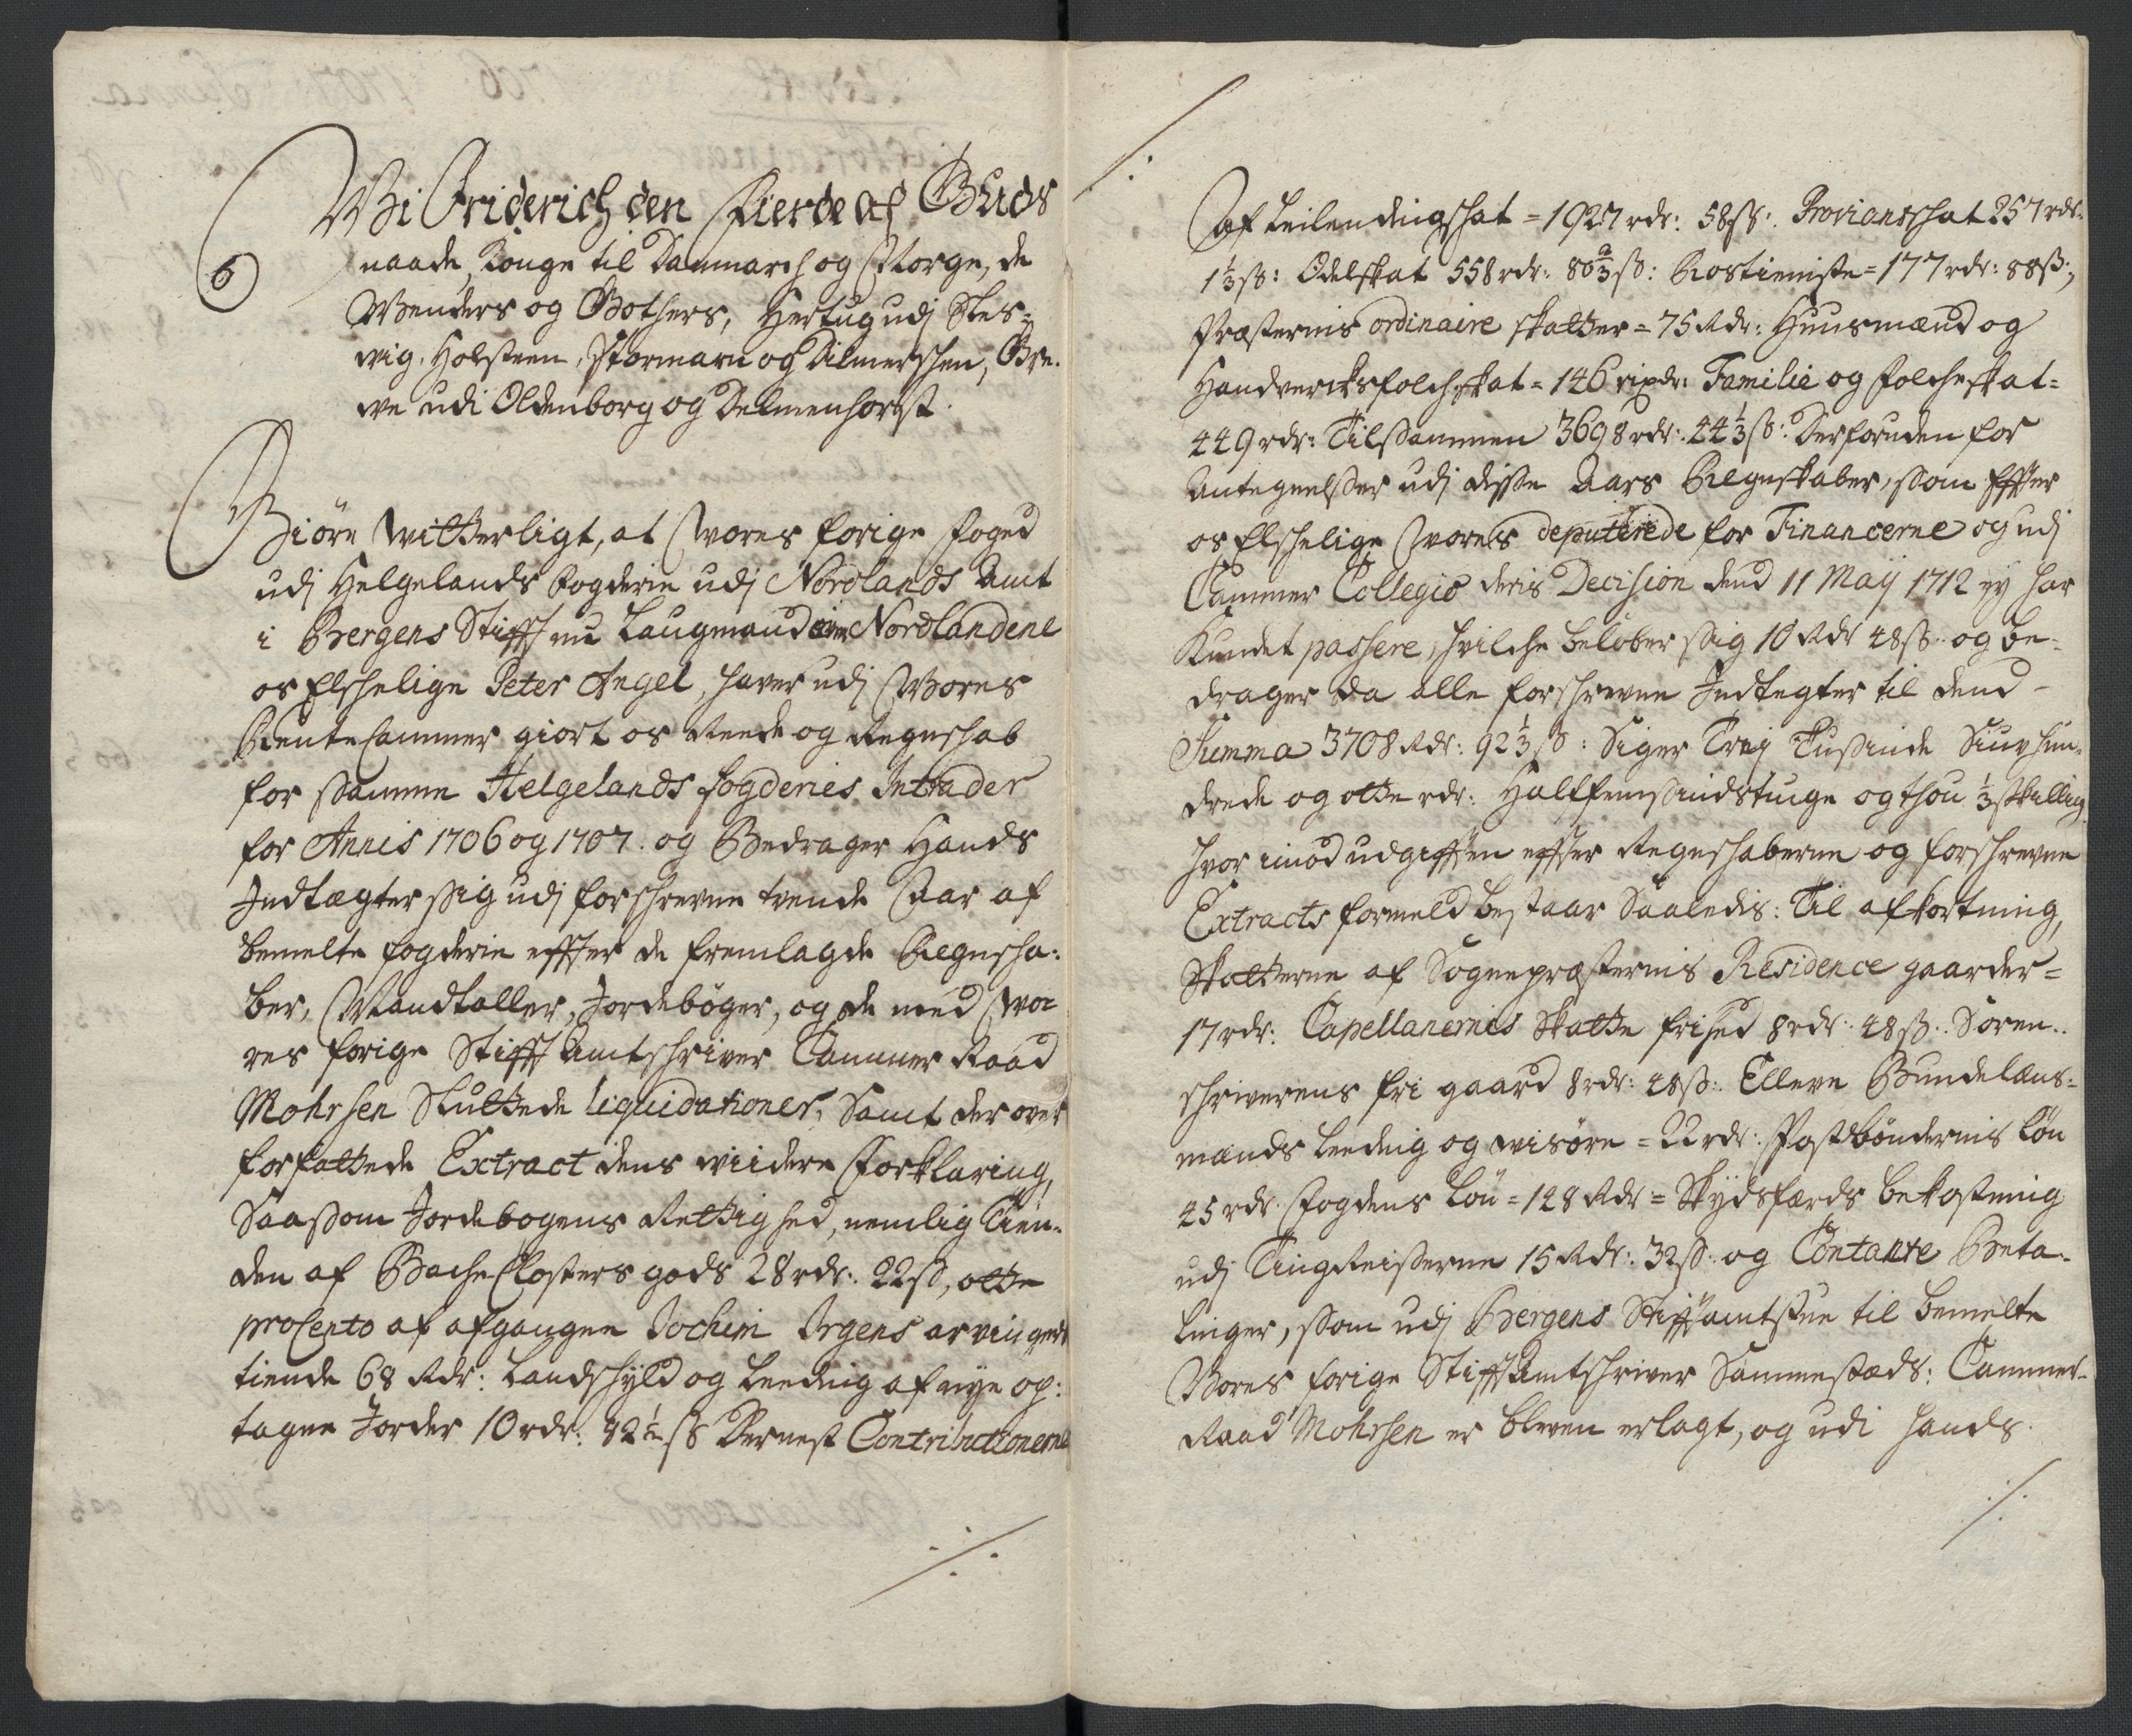 Wi Friderich den Fierde af Guds
naade, Konge til Danmarch og Norge, de
6
Wenders og Gothers, Hertug udj Sles-
wig, Holsteen, Stormarn og Ditmerschen, Gre-
we udi Oldenborg og Delmenhorst.
Giöre witterligt, at Wores forige Foged
udj Helgelands Fogderie udj Nordlands Amt
i Bergens Stifft nu Laugmand over Nordlandene
os Elschelige Peter Angel, haver udj Wores
RenteCammer giort os Reede og Regnschab
for samme Helgelands fogderies Intrader
for Annis 1706 og 1707. og Bedrager Hands
Indtægter sig udj forschrevne tvende Aar af
bemelte fogderie effter de fremlagde Regnscha-
ber, Mandtaller, Jordebøger, og de med Wo-
res forige Stifft Amtschriver Cammer Raad
Mohrsen Sluttede liquidationer, Samt der over
forfattede Extract dens wiidere Forklaring,
Saasom Jordebogens Rettighed, nemlig Tien-
den af Bache Closters gods 28 rdr: 22 ß, otte
procento af afgangne Jochim Irgens arvingers
tiende 68 Rdr: Landschyld og Leeding af nye op-
tagne Jorder 10 rdr: 82½ ß Dernest Contributionerne
./.
./.
Af Leilendingschat = 1927 rdr: 58 ß: Proviantschat 257 rdr:
1⅓ ß: Odelskat 558 rdr: 80⅔ ß: Rostieniste = 177 rdr: 88 ß:,
Præsternis ordinaire skatter = 75 Rdr: Huusmænd og
Handverksfolchskat = 146 rixdr: Familie og Folcheskat =
449 rdr: Tilsammen 3698 rdr: 44⅓ ß: Derforuden for
Antegnelser udj disse Aars Regnskaber, som effter
os Elschelige Wores deputerede for Financerne og udj
Cammer Collegio deris Decision dend 11 Maÿ 1712 ey har
Kundet passere, hvilche beløber sig 10 Rdr 48 ß: og be-
drager da alle forschrevne Indtegter til dend
Summa 3708 Rdr: 92⅓ ß: Siger Trej Tusinde Siuvhun-
drede og otte rdr: Halffemsindstiuge og thou ⅓ skilling
hvor imod udgifften effter Regnschaberne og forschrevne
Extracts formeld bestaar Saaledis: Til afkortning,
Skatterne af Sognepræsternis Residence gaarder =
17 rdr: Capellanernis Skatte frihed 8 rdr: 48 ß: Soren-
schriverens fri gaard 8 rdr: 48 ß: Elleve Bundelens-
mænds Leeding og wisøre = 22 rdr: Postbøndernis Løn
45 rdr. Fogdens Løn = 128 Rdr = Skydsfærds bekostning
udj TingReiserne 15 Rdr: 32 ß: og Contante Beta-
linger, som udj Bergens Stifftamtstue til bemelte
Wores forige Stifft Amtschriver Sammestæds: Cammer-
Raad Mohrsen er bleven erlagt, og udi hands
./.